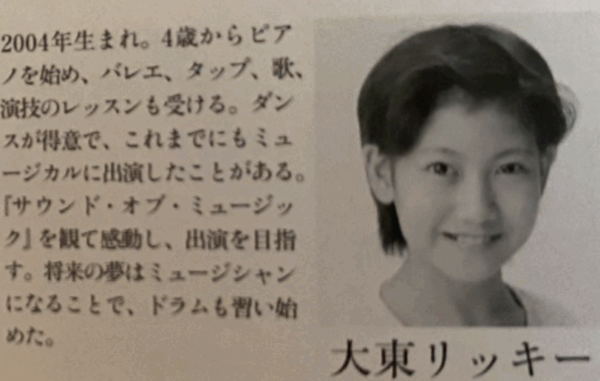 2004年生まれ。4歳からピア
ノを始め、バレエ、タップ、歌、
演技のレッスンも受ける。ダン
スが得意で、これまでにもミュ
ージカルに出演したことがある。
『サウンド・オブ・ミュージッ
ク』を観て感動し、出演を目指
す。将来の夢はミュージシャン
になることで、ドラムも習い始
めた。
大東リッキー